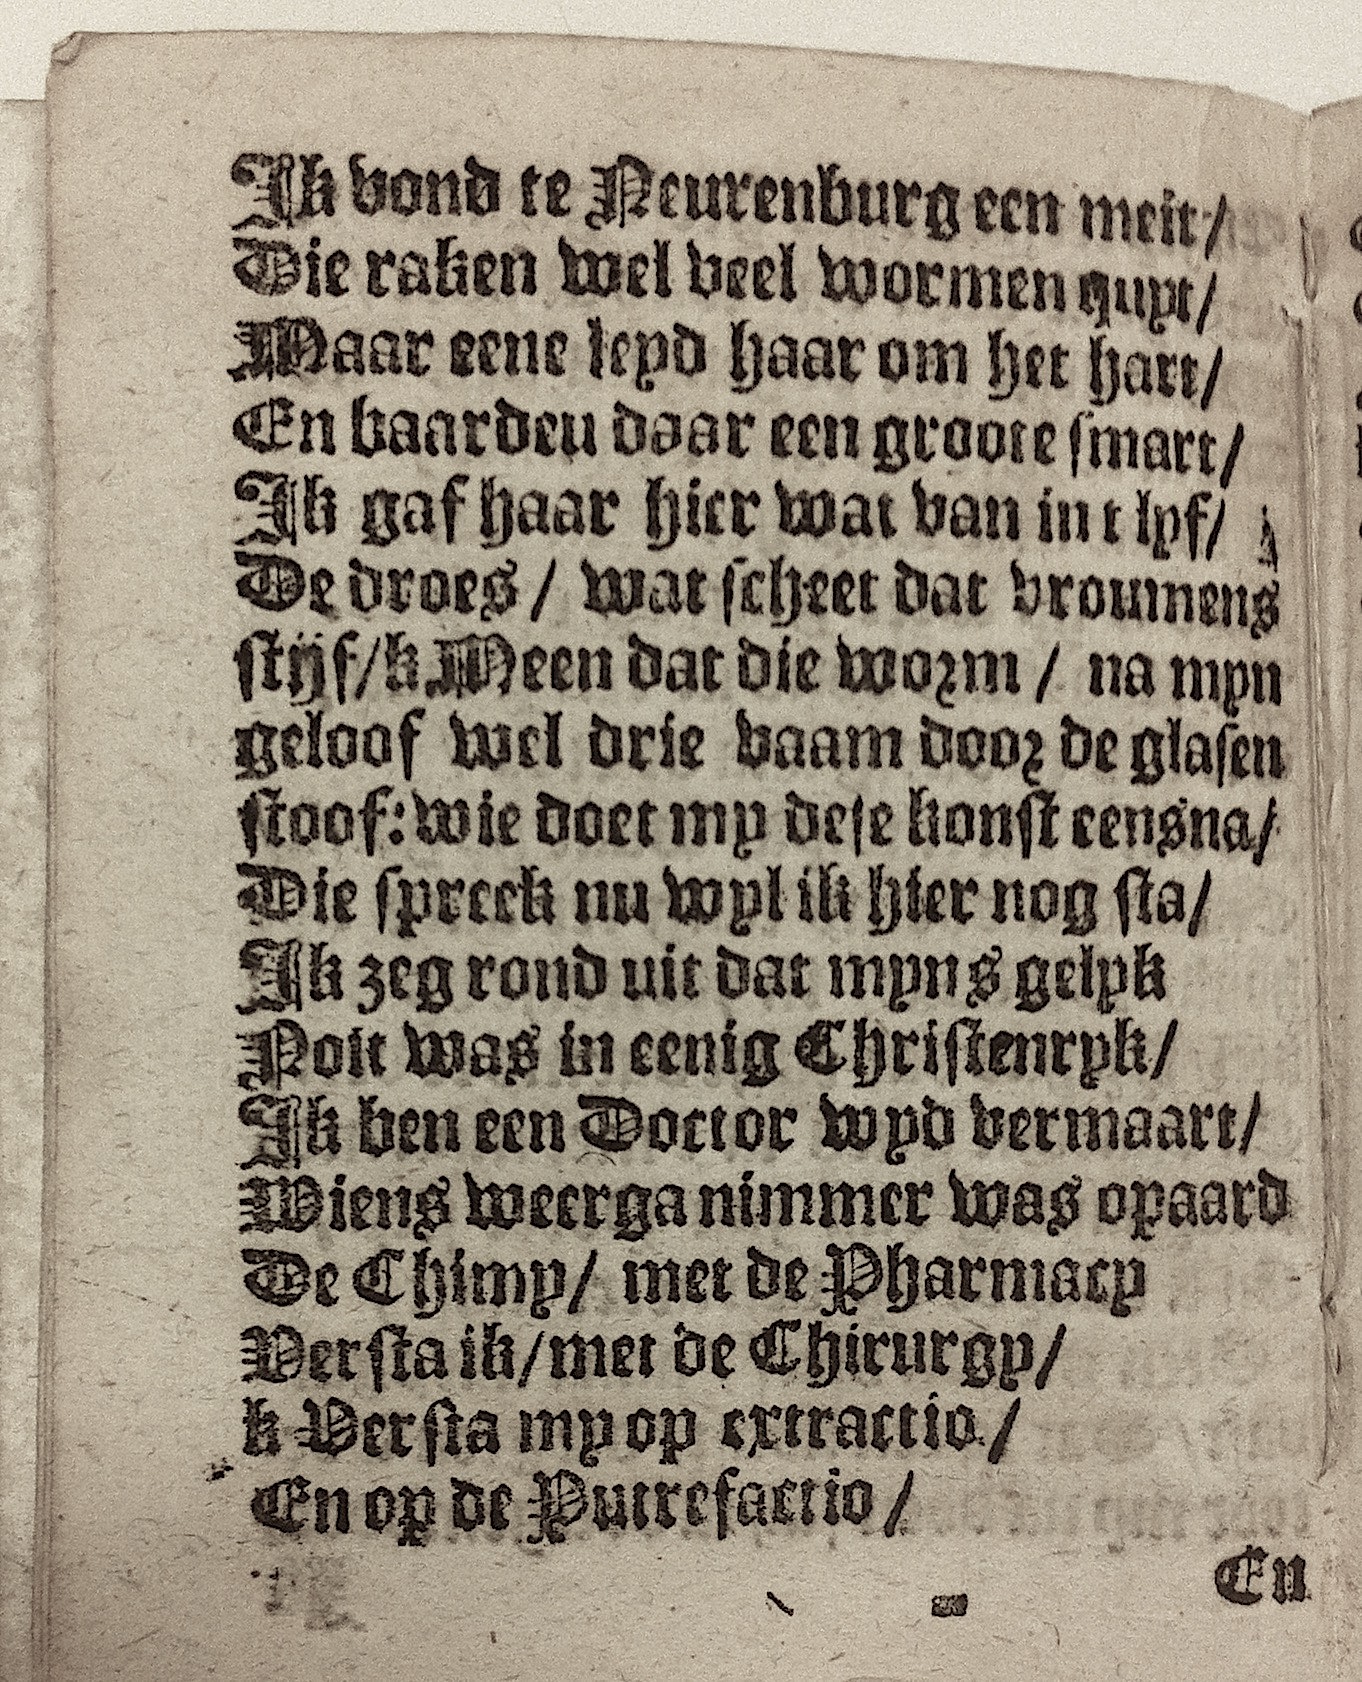 Ik vond te Neurenburg een meit/
Die raken wel veel wormen quyt/
Maar eene leyd haar om het hart/
En baardeu daar een groote smart/
Ik gaf haar hier wat van in t lyf/
De droes/ wat scheet dat vroumens
stijf/k Meen dat die worm/ na myn
geloof wel drie vaam door de glasen
stoof: wie doet my dese konst eensna/
Die spreek nu wyl ik hier nog sta/
Ik zeg rond uit dat myns gelyk
Noit was in eenig Christenryk/
Ik ben een Doctor wyd vermaart/
Wiens weerga nimmer was opaard
De Chimy/ met de Pharmacy
Versta ik/met de Chirurgy/
k Versta my op extractio/
En op de Putrefactio/
En